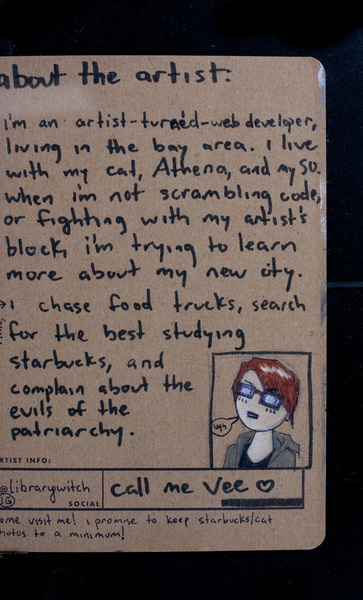 about the artist:
i'm an artist-turned-web developer,
living in the bay area. i live
with my cat, Athena, and my SO.
when i'm not scrambling code,
or fighting with my artist's
block, i'm trying to learn
more about my new city.
→i chase food trucks, search
for the best studying
starbucks, and
complain about the
evils of the
patriarchy.
ugh
RTIST INFO:
@librarywitch
IG
SOCIAL
call me Vee ♡
ome visit me! i promise to keep starbucks/cat
hotos to a minimum!